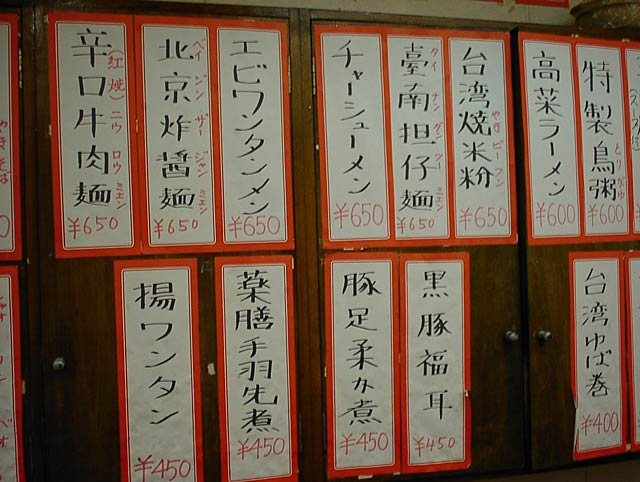 特製鳥粥
とりがゆ
¥600
高菜ラーメン
¥600
台湾焼米粉
やきビーフン
¥650
臺南担仔麺
タイナンダンツーミエン
¥650
チャーシューメン
¥650
エビワンタンメン
¥650
北京炸醤麺
ペイジンザージャンミエン
¥650
辛口牛肉麺
(紅焼)ニウロウミエン
¥650
やきそば
台湾ゆば巻
¥400
黒豚福耳
¥450
豚足柔か煮
¥450
薬膳手羽先煮
¥450
揚ワンタン
¥450